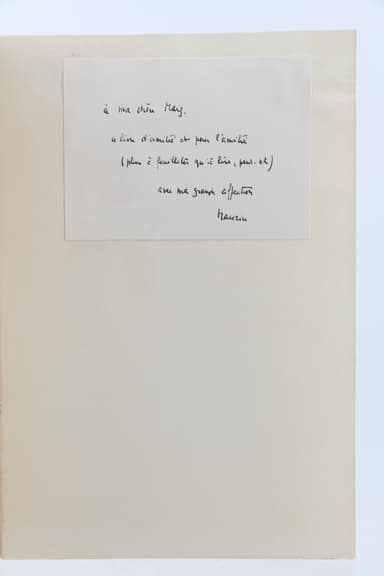 à ma chère Marg.
ce livre d'amitié et pour l'amitié
(plus à feuilleter qu'à lire, peut-être)
avec ma grande affection